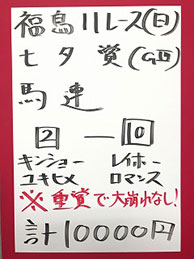 福島11レース(日)
七夕賞(GⅢ)
馬連
2 ー 10
キンショー レイホー
ユキヒメ ロマンス
※重賞で大崩れなし!
計10000円